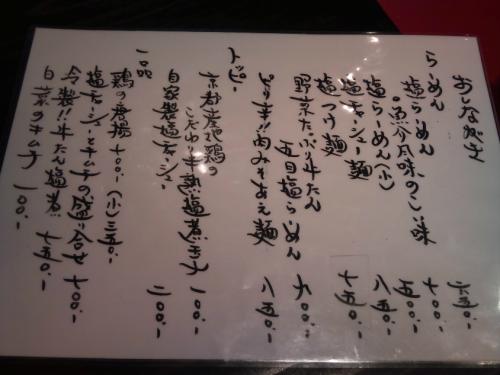 おしながき
らーめん
塩らーめん 六五〇.-
〃 魚介風味のこい味 七〇〇.-
塩らーめん(小) 五〇〇.-
塩チャーシュー麺 八五〇.-
塩つけ麺 七五〇.-
野菜たっぷり牛たん
五目塩らーめん 九〇〇.-
ピリ辛!!肉みそあえ麺 八五〇.-
トッピー
京都産地鶏の
こだわり半熟塩煮玉子 一〇〇.-
自家製塩チャーシュー 二〇〇.-
一品
鶏の唐揚 七〇〇.- (小)三五〇.-
塩チャーシューとキムチの盛り合せ 七〇〇.-
冷製!!牛たん塩煮!! 七五〇.-
白菜のキムチ 一〇〇.-